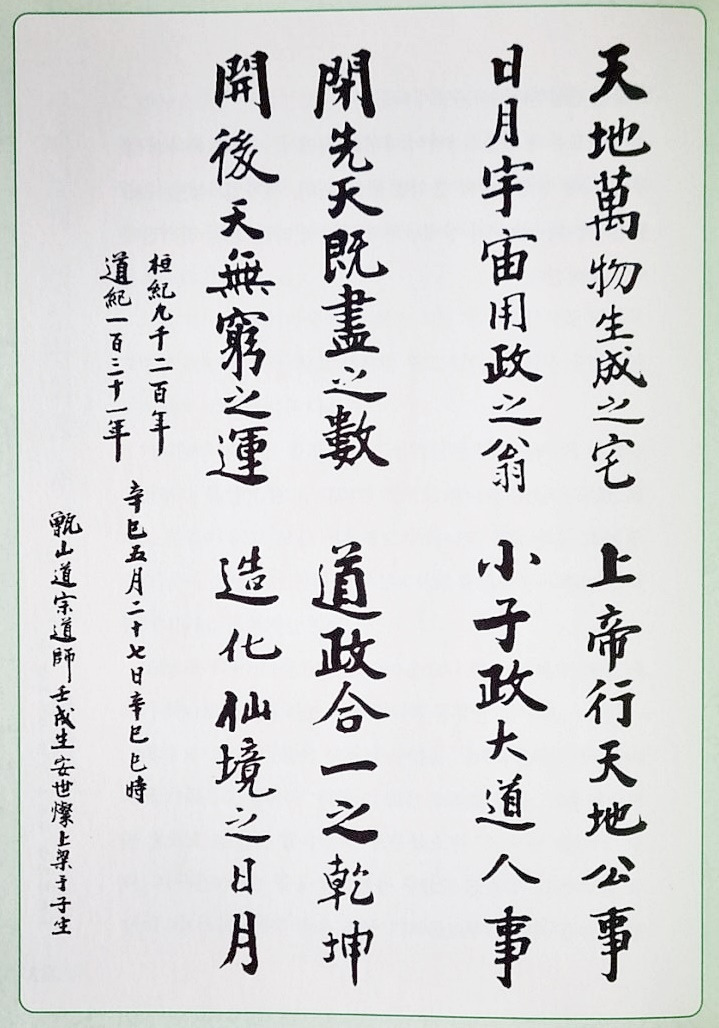 天地萬物生成之宅 上帝行天地公事
日月宇宙用政之翁 小子政大道人事
閉先天既盡之數 道政合一之乾坤
開後天無窮之運 造化仙境之日月
桓紀九千二百年
道紀一百三十一年
辛巳五月二十七日辛巳巳時
甑山道宗道師壬戌生安世燦上梁于子坐